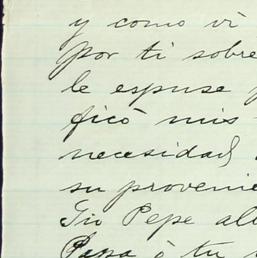 y como vi
por ti sobre
le espuse
ficó mis
necesidad
su provenie
Tio Pepe al
Papa ó tu